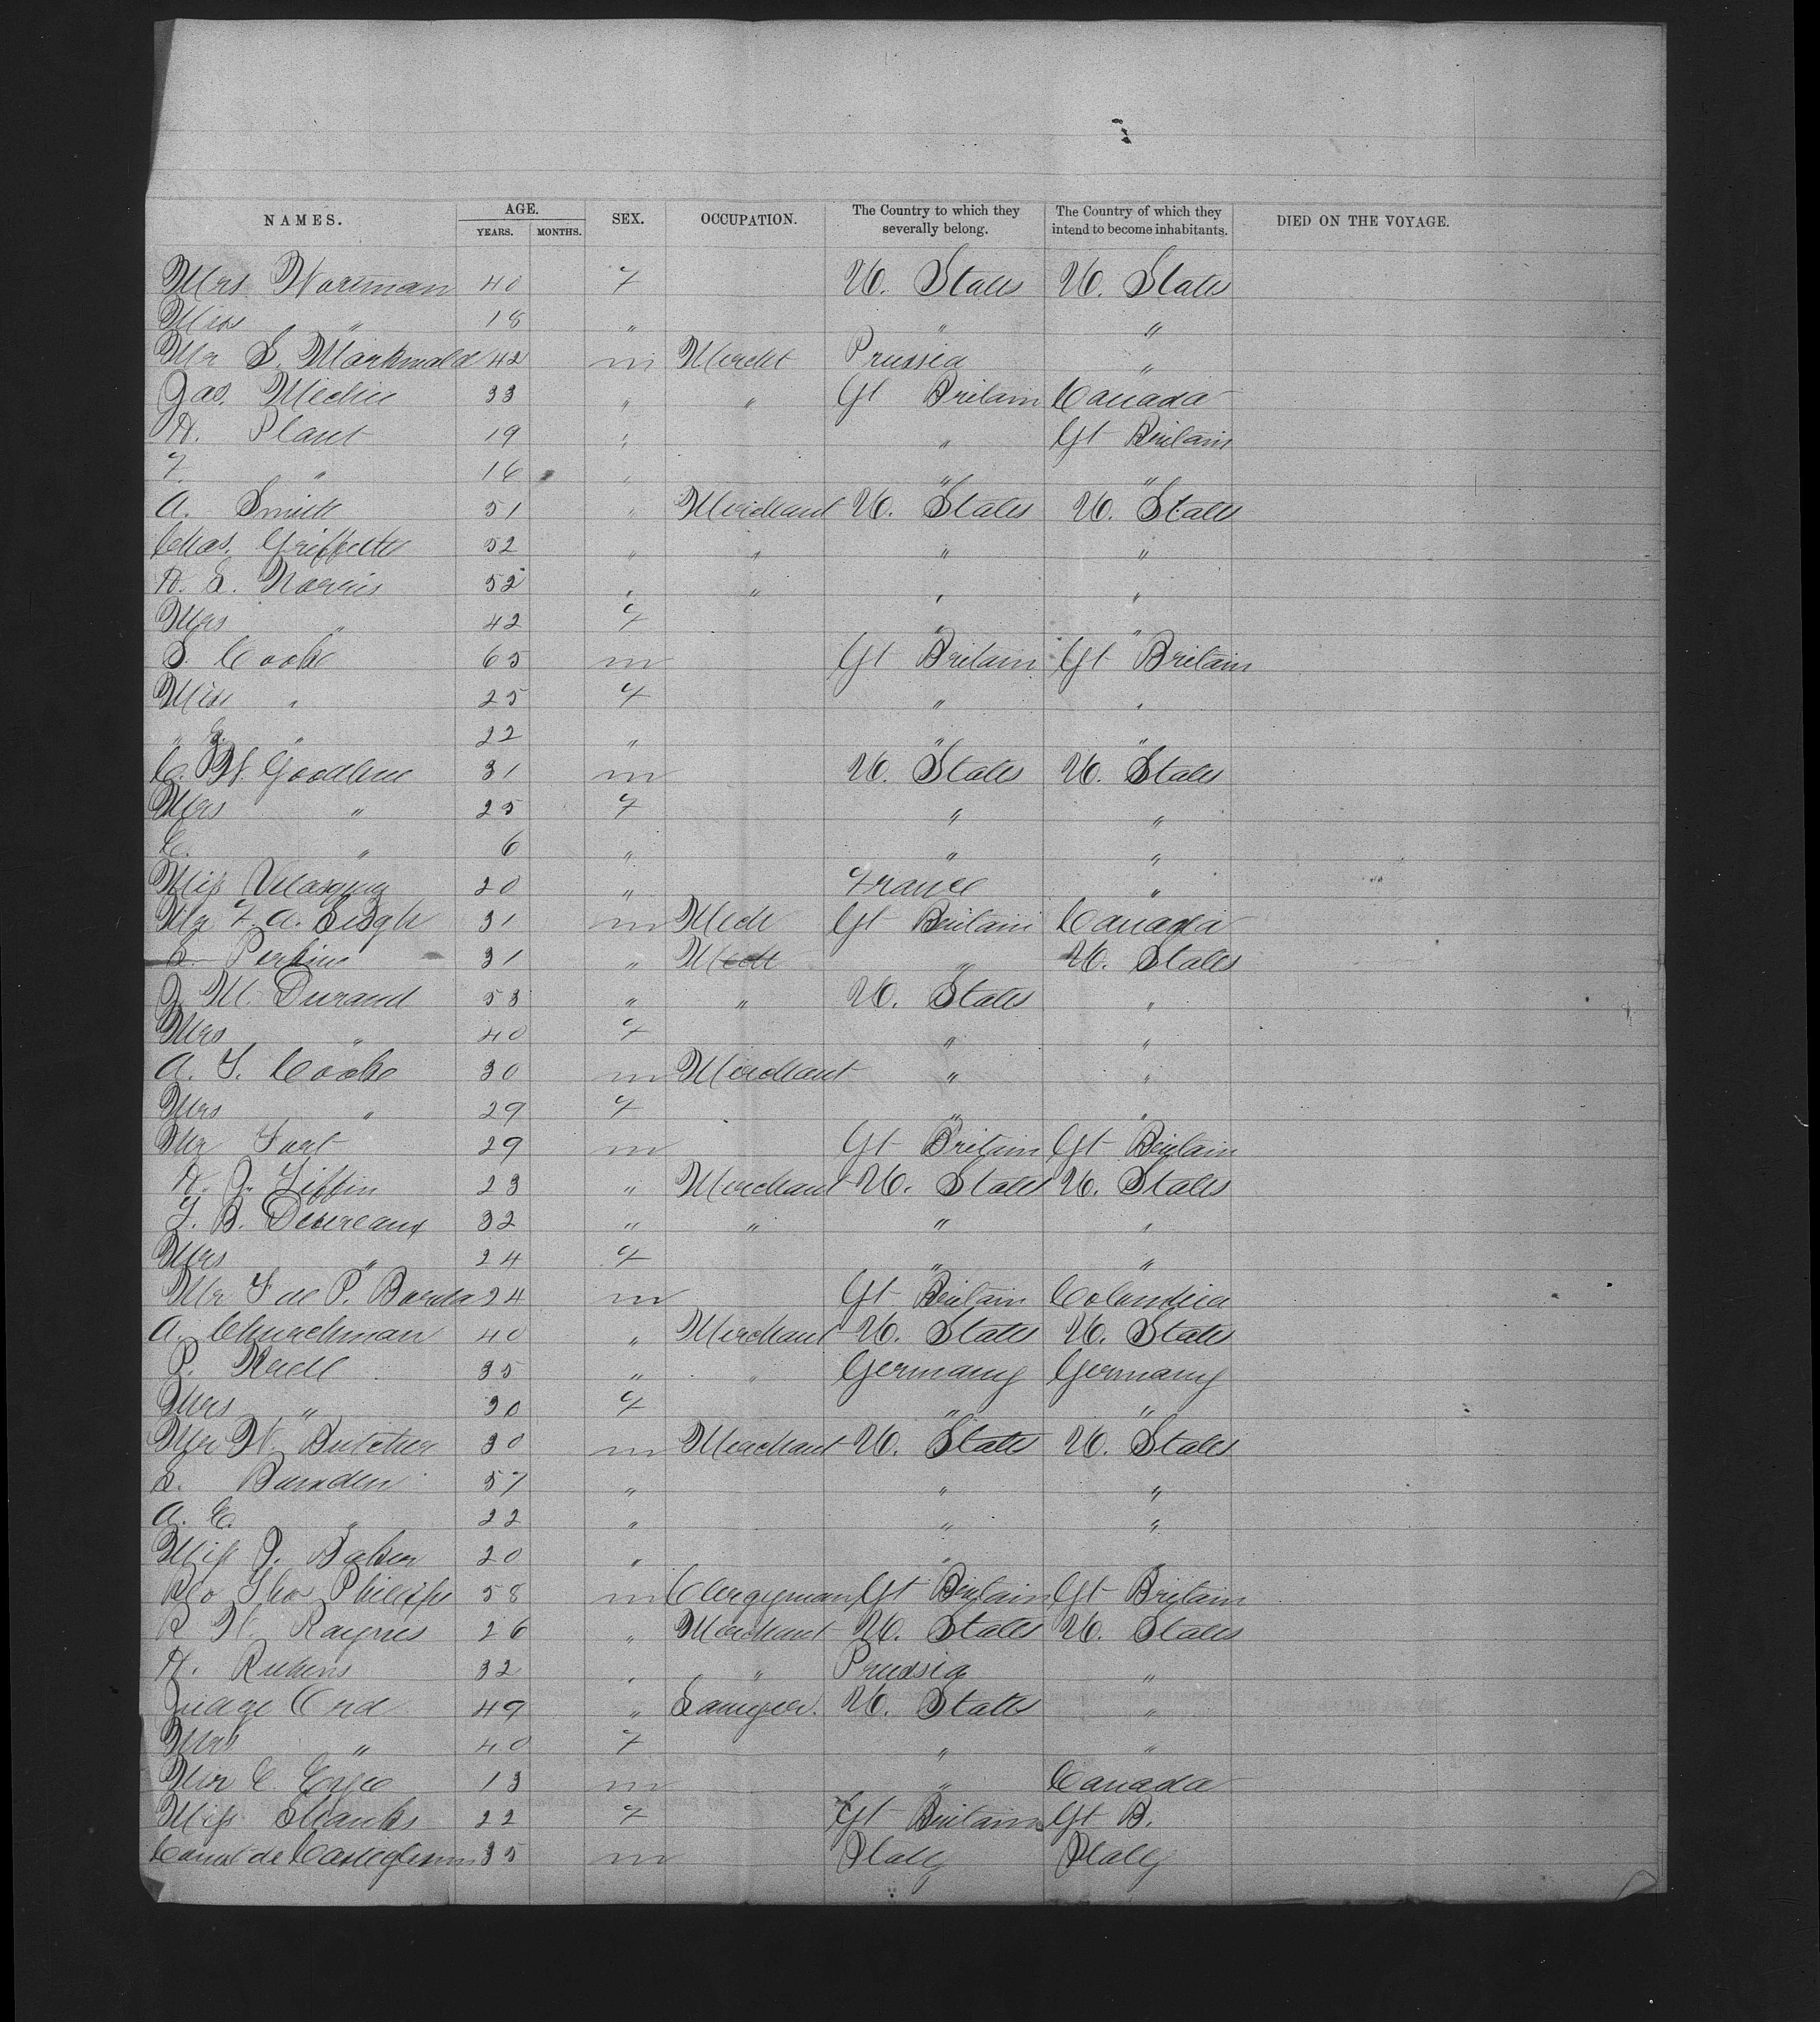 NAMES. AGE. SEX. OCCUPATION. The Country to which they severally belong. The Country of which they intend to become inhabitants. DIED ON THE VOYAGE.
YEARS. MONTHS.
Mrs Wortman 40 F U. States U. States
Miss " 18 " " "
Mr S. Markwald 42 m Mercht Prussia "
Jas. Michie 33 " " Gt Britain Canada
H. Plant 19 " " Gt Britain
F. " 16 " " "
A. Smith 51 " Merchant U. States U. States
Chas. Griffith 52 " " " "
H. S. Norris 52 " " " "
Mrs " 42 F " "
S. Cooke 65 m Gt Britain Gt Britain
Miss " 25 F " "
" E. " 22 " " "
C. W. Goodline 31 m U. States U. States
Mrs " 25 F " "
C. " 6 " " "
Miss 20 " France "
Mr F. A. Leigh 31 m Mcht Gt Britain Canada
S. Perkins 31 " Mcht " U. States
J. M. Durand 53 " " U. States "
Mrs " 40 F " "
A. T. Cooke 30 m Merchant " "
Mrs " 29 F " "
Mr Fort 29 m Gt Britain Gt Britain
H. J. Tiffin 23 " Merchant U. States U. States
T. B. Devereaux 32 " " " "
Mrs " 24 F " "
Mr F de P. Borda 24 m Gt Britain Columbia
A. Churchman 40 " Merchant U. States U. States
P. Krell 35 " " Germany Germany
Mrs " 30 F " "
Mr W. Butcher 30 m Merchant U. States U. States
S. Bursden 57 " " "
A. E. " 22 " " "
Miss J. Baker 20 " " "
Rev Thos Phillips 58 m Clergyman Gt Britain Gt Britain
R. W. Raynes 26 " Merchant U. States U. States
H. Rubens 32 " " Prussia "
Judge Ord 49 " Lawyer. U. States "
Mrs " 40 F " "
Mr C. 13 m " Canada
Miss Shanks 22 F Gt Britain Gt B.
Count de 35 m Italy Italy